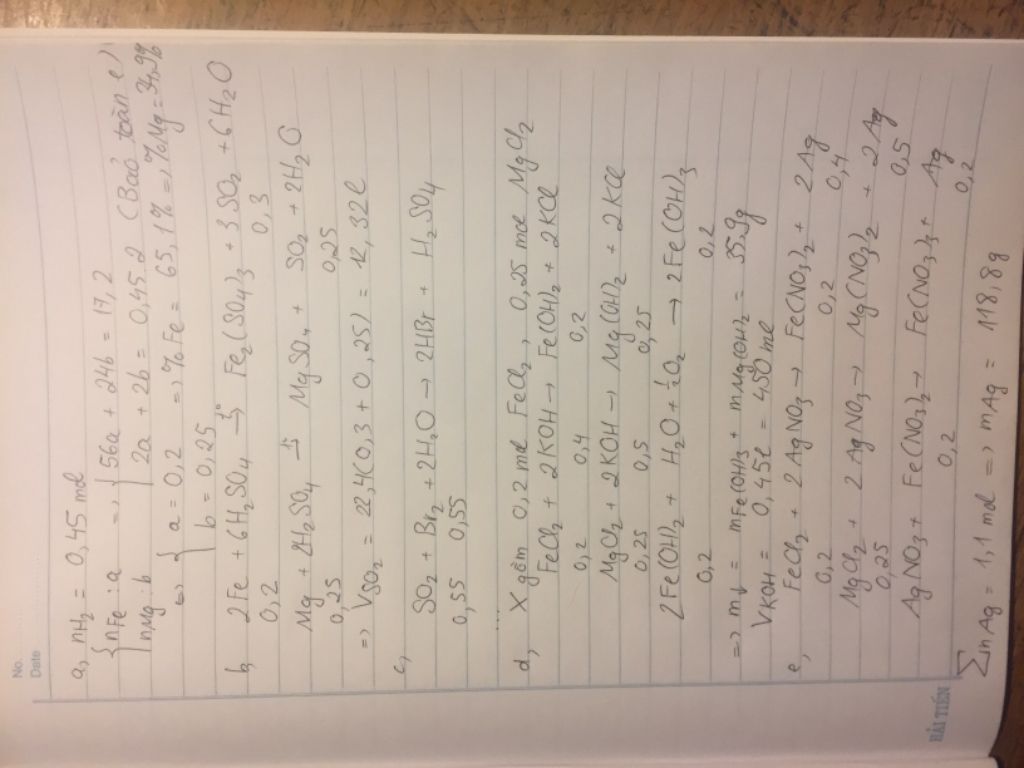 No.
Date
a, nH₂ = 0,45 mol
{ nFe : a => { 56a + 24b = 17,2
{ nMg : b { 2a + 2b = 0,45.2 (Bảo toàn e)
=> { a = 0,2 => %Fe = 65,1% => %Mg = 34,9%
{ b = 0,25
b, 2Fe + 6H₂SO₄ →t° Fe₂(SO₄)₃ + 3SO₂ + 6H₂O
0,2 0,3
Mg + 2H₂SO₄ →t° MgSO₄ + SO₂ + 2H₂O
0,25 0,25
=> VSO₂ = 22,4(0,3 + 0,25) = 12,32l
c,
SO₂ + Br₂ + 2H₂O → 2HBr + H₂SO₄
0,55 0,55
...
d, X gồm 0,2 mol FeCl₂, 0,25 mol MgCl₂
FeCl₂ + 2KOH → Fe(OH)₂ + 2KCl
0,2 0,4 0,2
MgCl₂ + 2KOH → Mg(OH)₂ + 2KCl
0,25 0,5 0,25
2Fe(OH)₂ + H₂O + ½O₂ → 2Fe(OH)₃
0,2 0,2
=> m↓ = mFe(OH)₃ + mMg(OH)₂ = 35,9g
VKOH = 0,45l = 450 ml
e, FeCl₂ + 2AgNO₃ → Fe(NO₃)₂ + 2Ag
0,2 0,2 0,4
MgCl₂ + 2AgNO₃ → Mg(NO₃)₂ + 2Ag
0,25 0,5
AgNO₃ + Fe(NO₃)₂ → Fe(NO₃)₃ + Ag
0,2 0,2
∑nAg = 1,1 mol => mAg = 118,8g
HẢI TIẾN